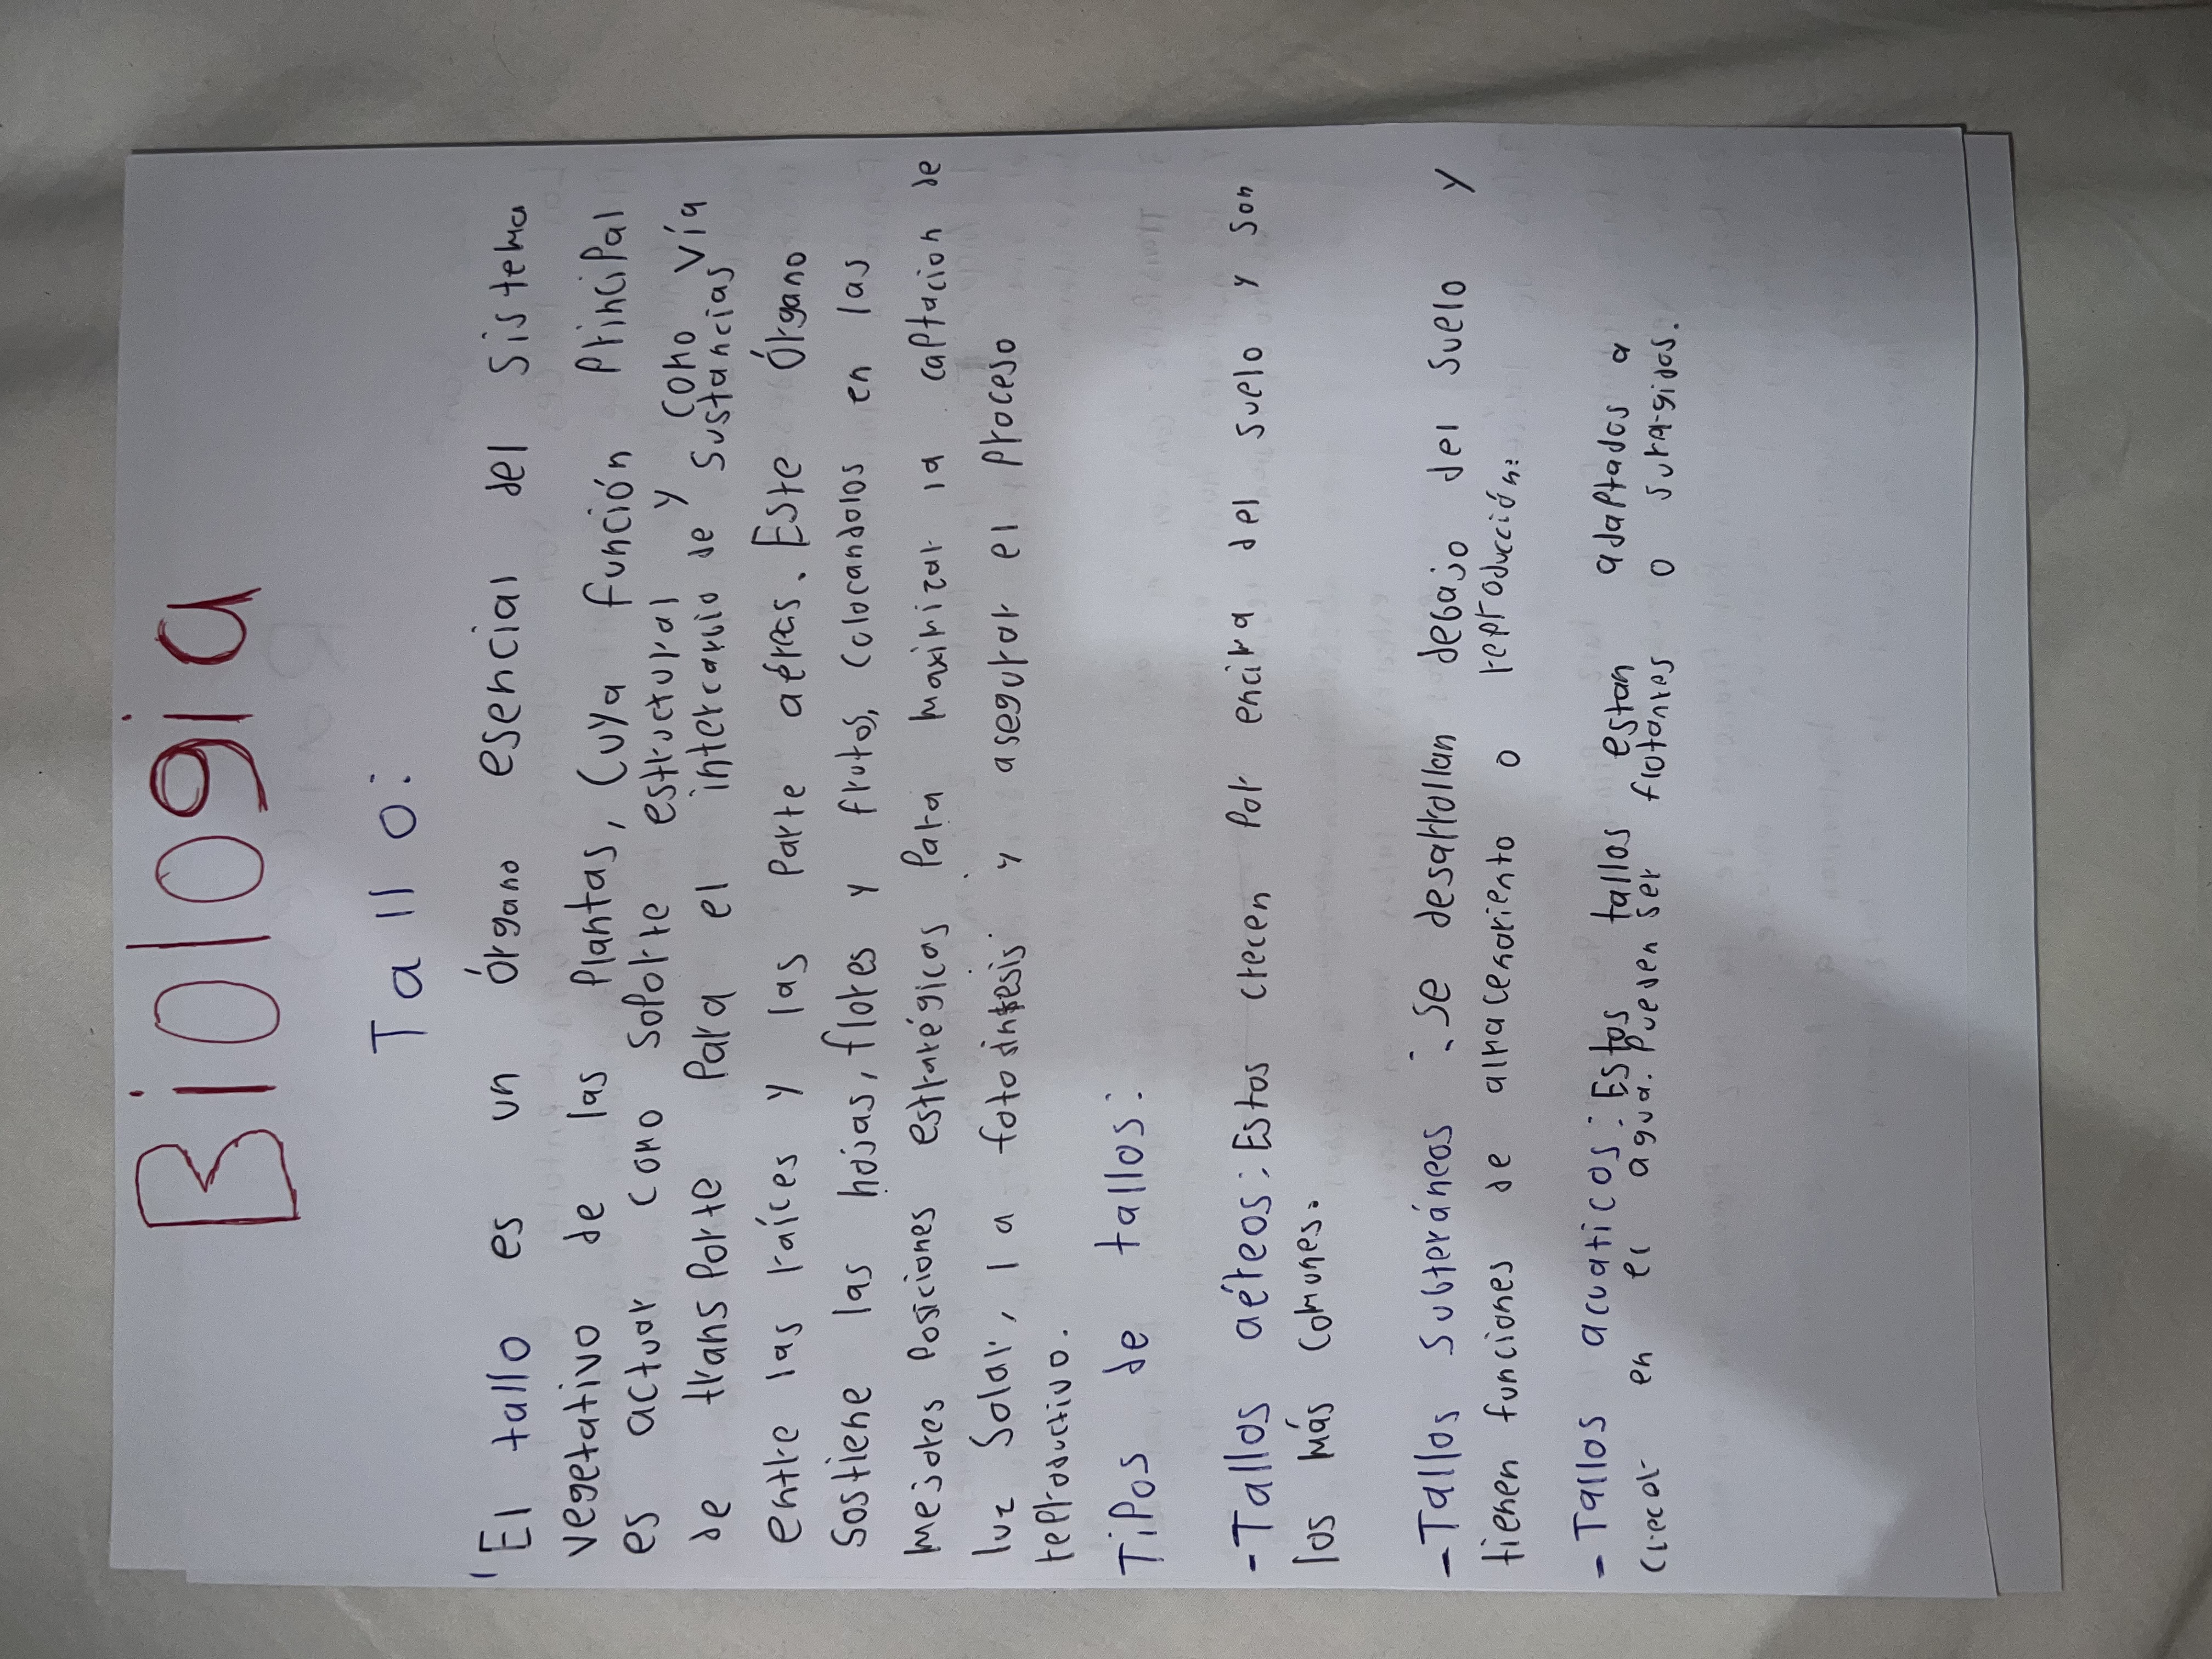 Biologia
Tallo:
El tallo es un Órgano esencial del sistema
vegetativo de las Plantas, cuya función Principal
es actuar como soporte estructural y como vía
de transporte Para el intercambio de sustancias
entre las raíces y las Parte aéreas. Este Órgano
sostiene las hojas, flores y frutos, colocandolos en las
mejores posiciones estratégicas Para maximizar la captacion de
luz Solar, la fotosintesis y asegurar el proceso
reproductivo.
Tipos de tallos:
-Tallos aéreos: Estos crecen Por encima del suelo y son
los más comunes.
-Tallos subterráneos : Se desarrollan debajo del suelo y
tienen funciones de almacenamiento o reproducción.
-Tallos acuaticos: Estos tallos estan adaptados a
crecer en el agua. Pueden ser flotantes o sumergidos.